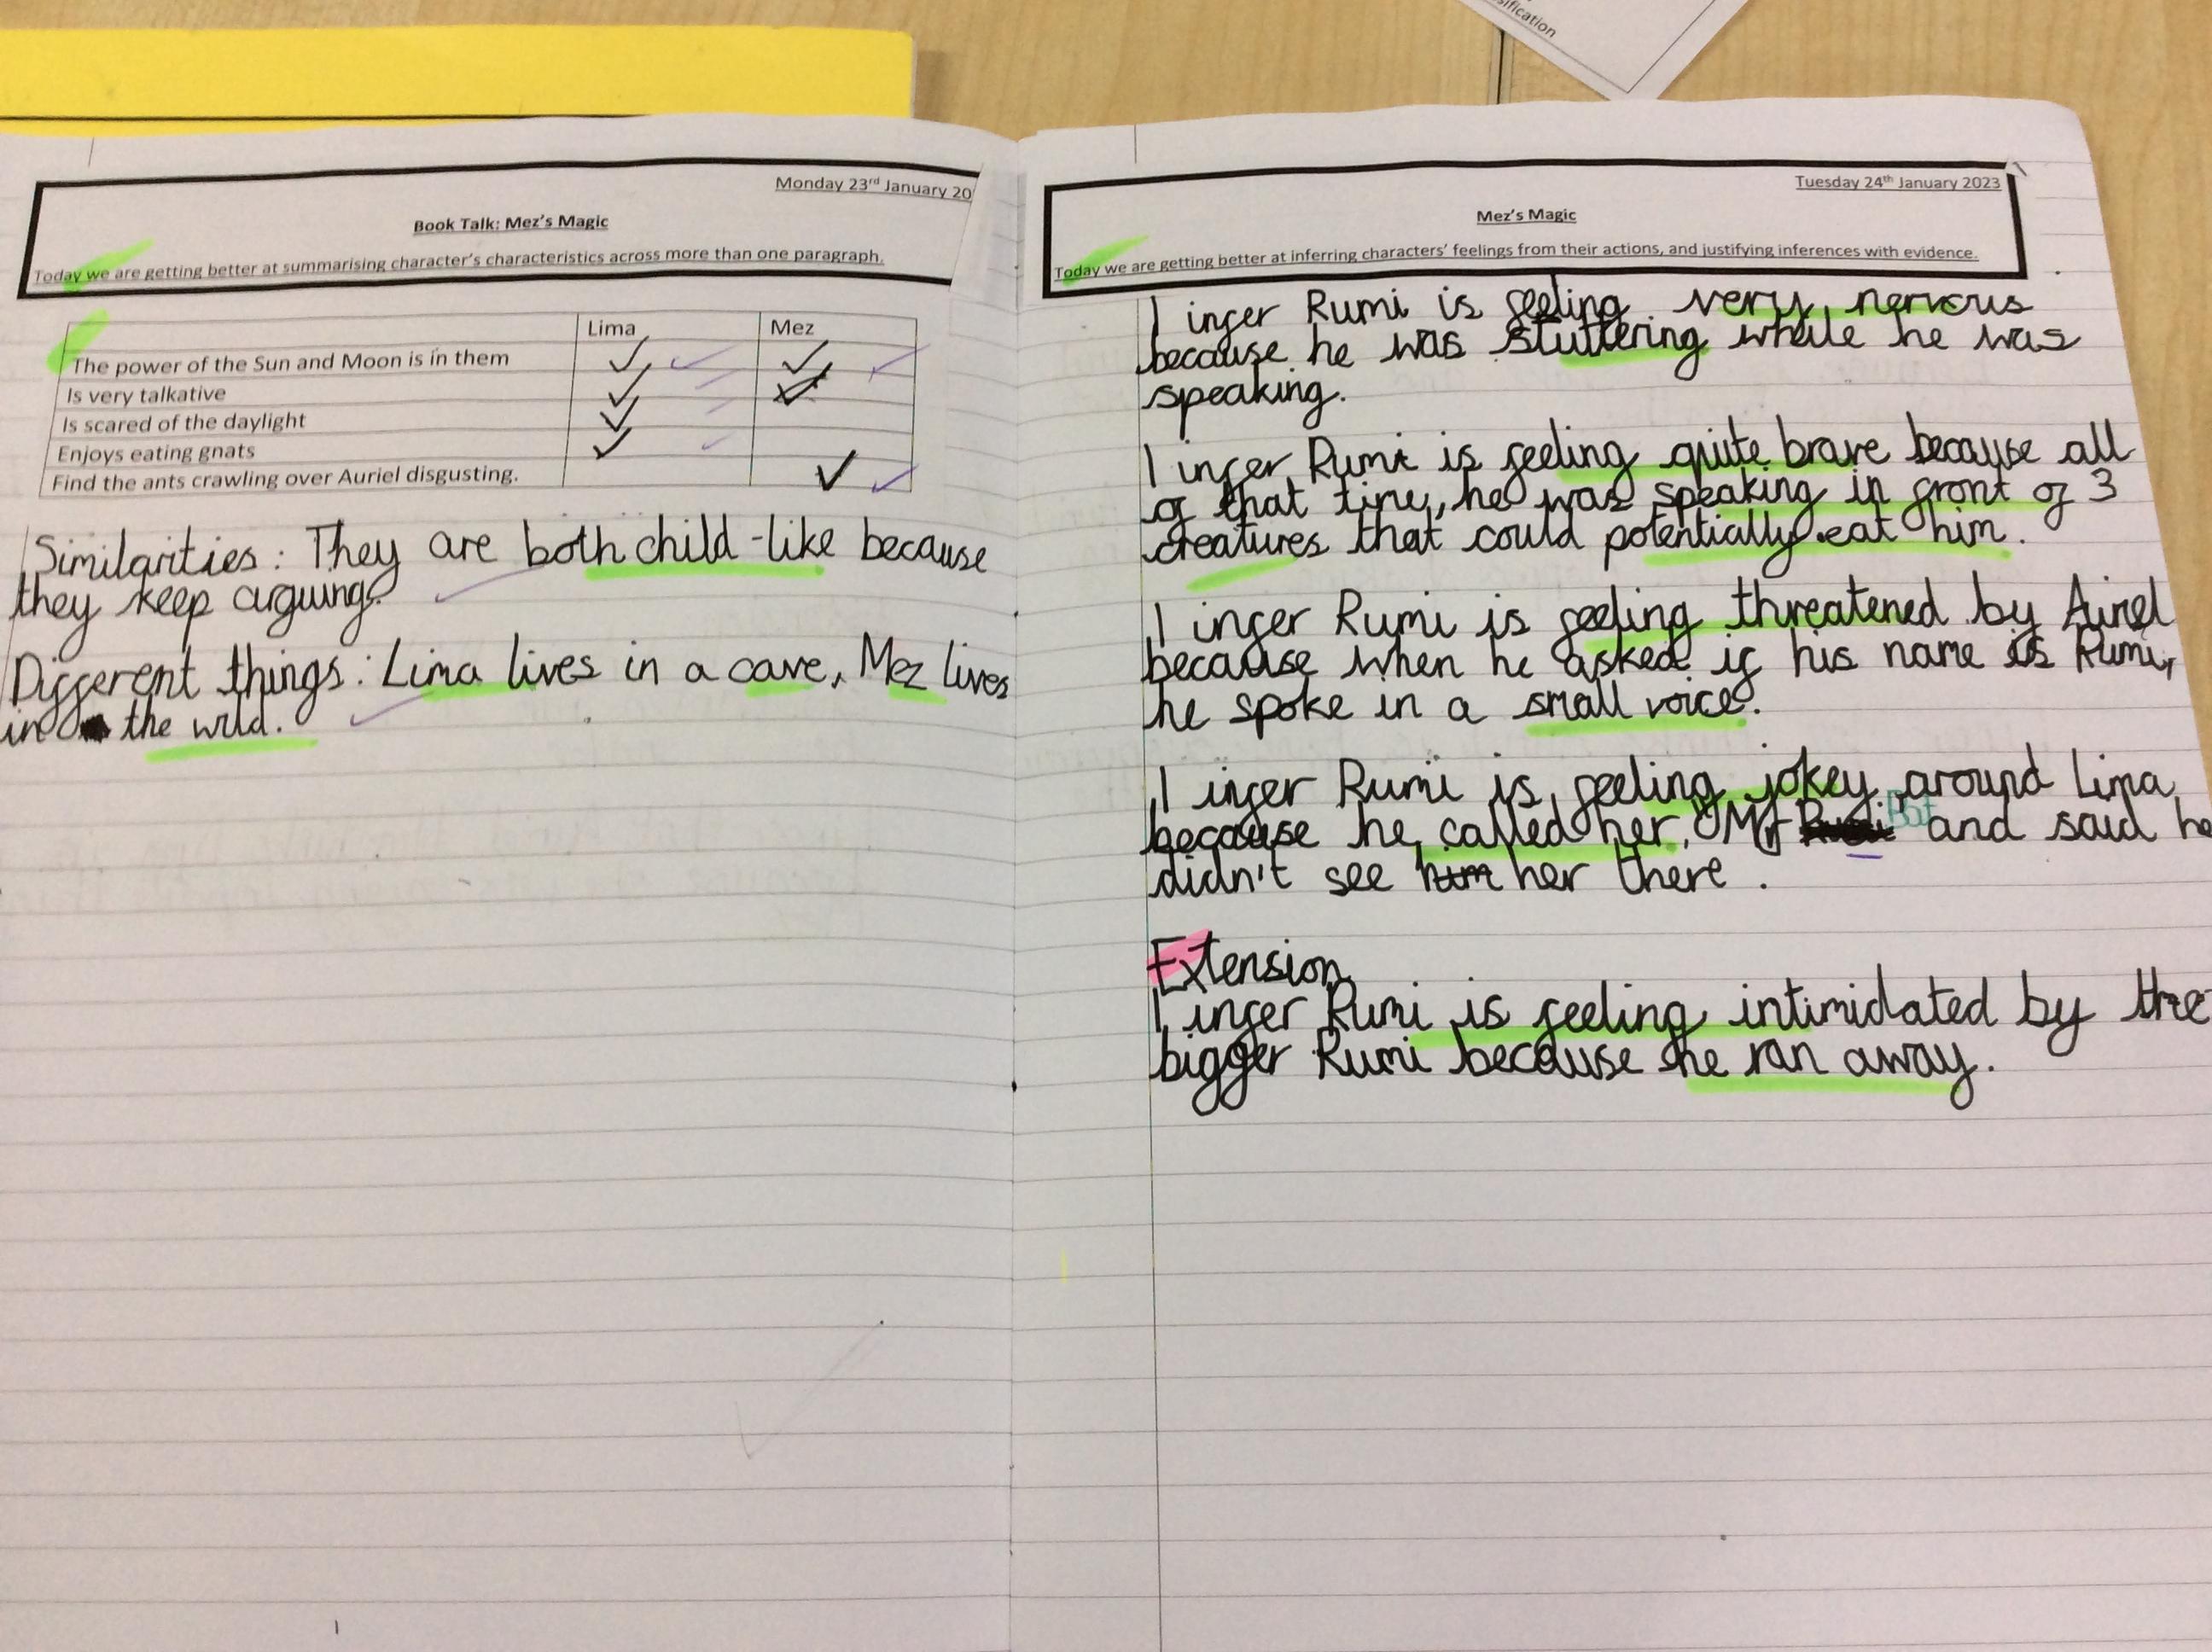 sification
Monday 23rd January 20
Book Talk: Mez's Magic
Today we are getting better at summarising character's characteristics across more than one paragraph.
Lima Mez
The power of the Sun and Moon is in them ✓ ✓
Is very talkative ✓
Is scared of the daylight ✓
Enjoys eating gnats ✓
Find the ants crawling over Auriel disgusting. ✓
Similarities: They are both child-like because
they keep arguing.
Different things: Lima lives in a cave, Mez lives
in the wild.
Tuesday 24th January 2023
Mez's Magic
Today we are getting better at inferring characters' feelings from their actions, and justifying inferences with evidence.
I infer Rumi is feeling very nervous
because he was stuttering while he was
speaking.
I infer Rumi is feeling quite brave because all
of that time, he was speaking in front of 3
creatures that could potentially eat him.
I infer Rumi is feeling threatened by Auriel
because when he asked if his name is Rumi,
he spoke in a small voice.
I infer Rumi is feeling jokey around Lima
because he called her, Mr Bat and said he
didn't see him her there.
Extension
I infer Rumi is feeling intimidated by the
bigger Rumi because he ran away.